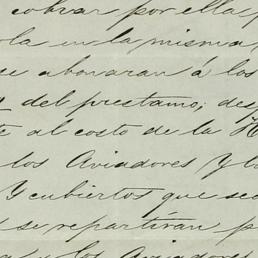 cobrar por ella,
ola en la misma,
se abonaran á los
del prestamo; des
te al costo de la H
los Aviadores Y l
Y cubiertos que sea
se repartiran p
y los Aviadores